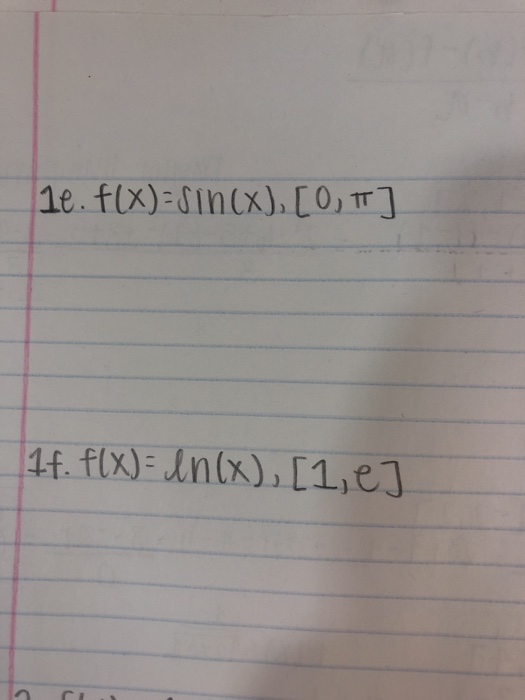 1e. f(x)=sin(x), [0, π]
1f. f(x)= ln(x), [1, e]